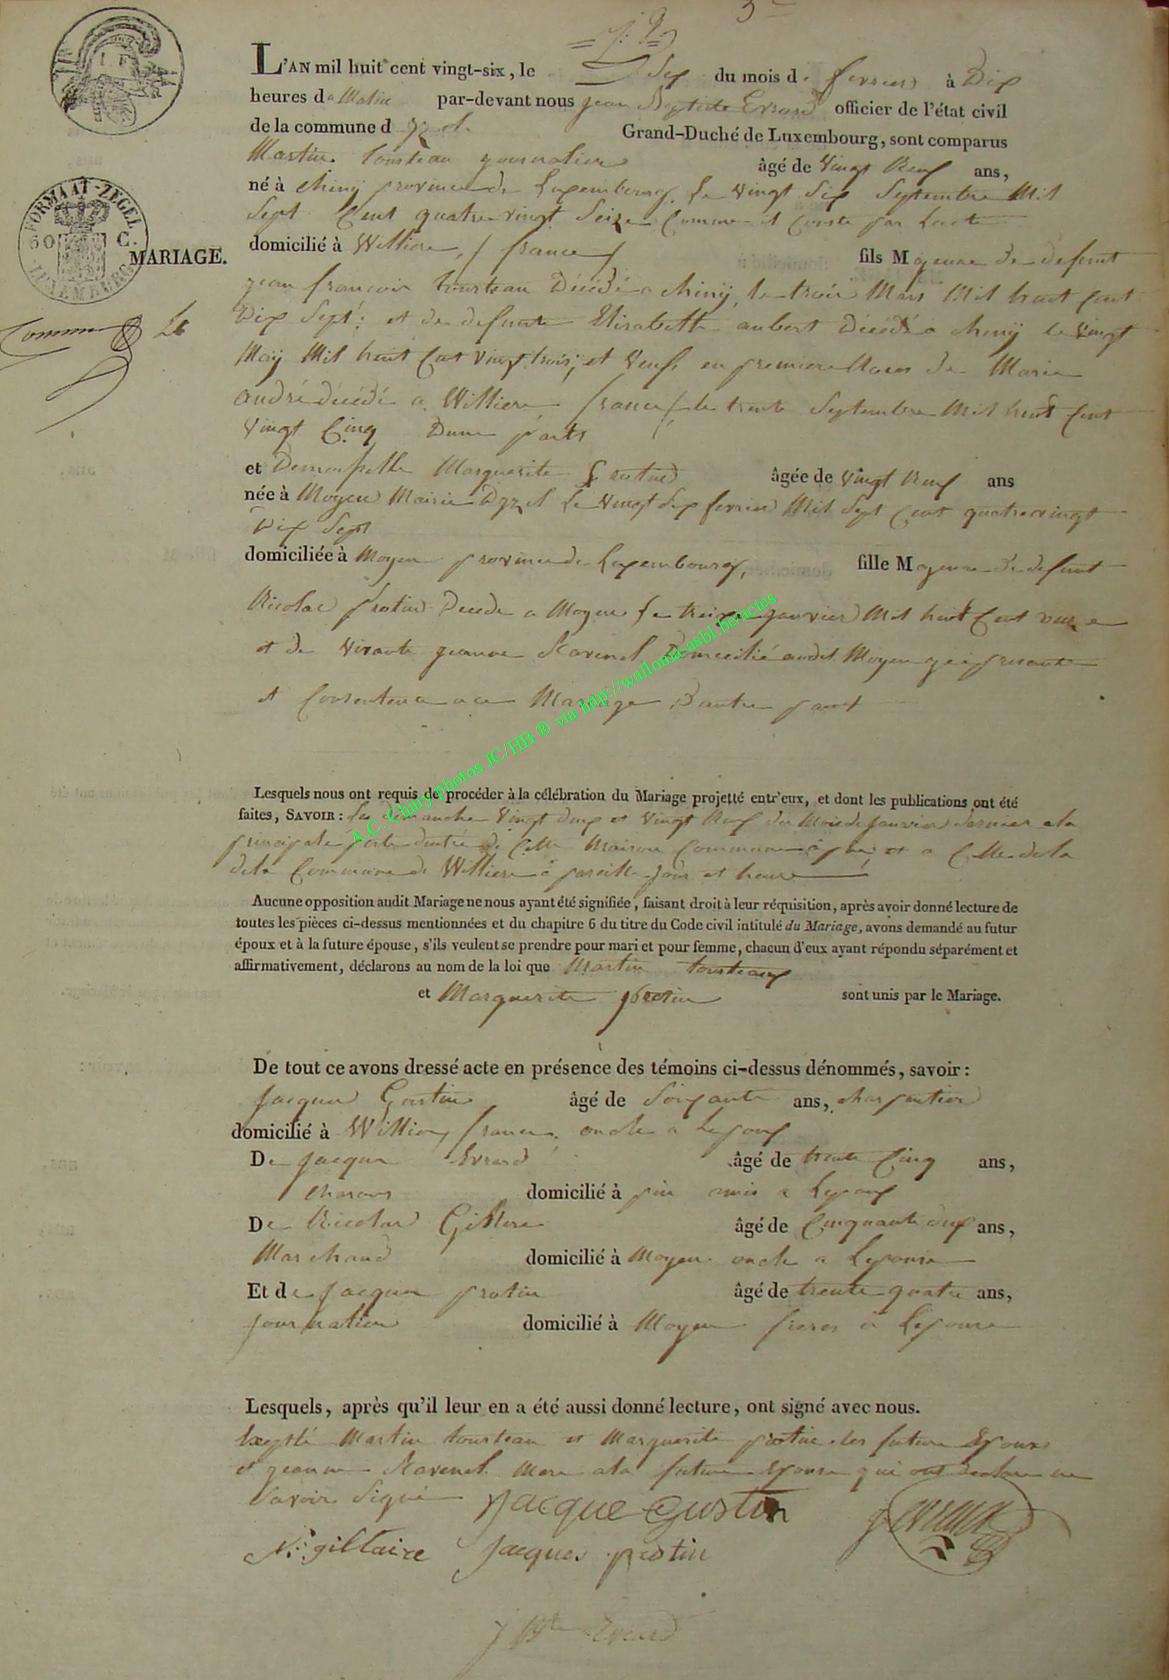 L'AN mil huit cent vingt-six, le Six du mois de fevrier à Dix
heures du Matin par-devant nous jean Baptiste Evrard officier de l'état civil
de la commune d'yzel. Grand-Duché de Luxembourg, sont comparus
Martin tourteau journalier âgé de vingt Neuf ans,
né à chiny province de Luxembourg, Le vingt Six Septembre Mil
Sept Cent quatre vingt Seize Comme il Conste par Lacte
FORMAAT-ZEGEL
50 C.
LUXEMBURG
MARIAGE.
domicilié à Williere, / france / fils Majeure de defunt
jean francois tourteau Décédé a chiny, le trois Mars Mil huit Cent
Dix Sept: et de defunte Elisabeth aubert Décédé a chiny le vingt
May Mil huit Cent vingt trois, et veuf, en premiere Noces de Marie
andré décédé a Williere, france / le trente Septembre Mil huit Cent
vingt Cinq Dune part
et Demoiselle Marguerite Protin âgée de vingt Neuf ans
née à Moyen Mairie Dyzel Le vingt Six fevrier Mil Sept Cent quatre vingt
Dix Sept
domiciliée à Moyen province de Luxembourg, fille Majeure de defunt
Nicolas protin Décédé a Moyen Le treize janvier Mil huit Cent onze
et de vivante jeanne Ravenel Domicilié audit Moyen y ci presente
et Consentence a ce Mariage Dautre part
Lesquels nous ont requis de procéder à la célébration du Mariage projetté entr'eux, et dont les publications ont été
faites, SAVOIR: Les dimanche vingt deux et vingt Neuf du Mois de janvier dernier ala
principale porte dentré de Cette Maison Commune et a Celle de la
de la Commune de Williere a pareille jour et heure
Aucune opposition audit Mariage ne nous ayant été signifiée, faisant droit à leur réquisition, après avoir donné lecture de
toutes les pièces ci-dessus mentionnées et du chapitre 6 du titre du Code civil intitulé du Mariage, avons demandé au futur
époux et à la future épouse, s'ils veulent se prendre pour mari et pour femme, chacun d'eux ayant répondu séparément et
affirmativement, déclarons au nom de la loi que Martin tourteaux
et Marguerite protin sont unis par le Mariage.
De tout ce avons dressé acte en présence des témoins ci-dessus dénommés, savoir:
Jacques Gustin âgé de Soixante ans, charpentier
domicilié à Williere, france, oncle a Lepoux
De Jacque Evrard âgé de trente Cinq ans,
charons domicilié à pin amis a Lepoux
De Nicolas Giltere âgé de Cinquante deux ans,
Marchand domicilié à Moyen oncle a Lepouse
Et de Jacques protin âgé de trente quatre ans,
journalier domicilié à Moyen freres a Lepouse
Lesquels, après qu'il leur en a été aussi donné lecture, ont signé avec nous.
Exepté Martin tourteau et Marguerite protin les future Epoux
et jeanne Ravenel Mere ala future Epouse qui ont declare ne
Savoir Signé jacque Gustin
N: giltaire jacques protin
J Bte Evrard
A.C. Chiny photos JC/HB ® via http://wallonia-asbl.be/actes